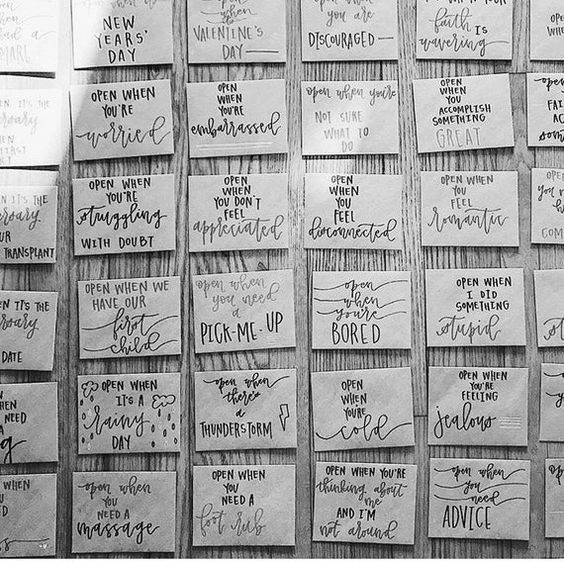 had a
NEW
YEARS'
DAY
open when
VALENTINE'S
DAY
you are
DISCOURAGED
faith IS
wavering
IT'S THE
OPEN WHEN
YOU'RE
worried
OPEN
WHEN
YOU'RE
embarrassed
open when you're
NOT SURE
WHAT TO
DO
OPEN
WHEN
YOU
ACCOMPLISH
SOMETHING
GREAT
IT'S THE
TRANSPLANT
OPEN WHEN
YOU'RE
struggling
WITH DOUBT
OPEN
WHEN
YOU DON'T
FEEL
appreciated
OPEN
WHEN
YOU
FEEL
disconnected
OPEN WHEN
YOU
FEEL
romantic
IT'S THE
DATE
OPEN WHEN WE
HAVE OUR
first
child
open when
you need
a
PICK-ME-UP
open
when
you're
BORED
OPEN WHEN
I DID
SOMETHING
stupid
WHEN
NEED
OPEN WHEN
IT'S A
rainy
DAY
open when
there's
a
THUNDERSTORM
OPEN
WHEN
YOU'RE
cold
OPEN WHEN
YOU'RE
FEELING
jealous
open when
YOU
NEED A
massage
OPEN WHEN
YOU
NEED A
foot rub
OPEN WHEN YOU'RE
thinking about
me
AND I'M
not around
open when
you
need
ADVICE